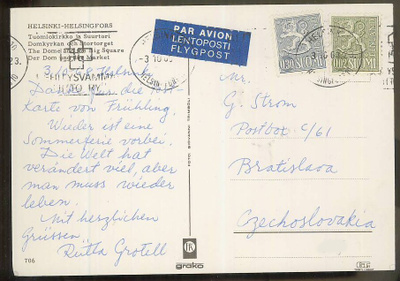 HELSINKI-HELSINGFORS
Tuomiokirkko ja Suurtori
Domkyrkan och Stortorget
The Dome and the Big Square
Der Dom und der Markt
PAR AVION
LENTOPOSTI
FLYGPOST
Danke für die
Karte von Frühling.
Wieder ist eine
Sommerferie vorbei.
Die Welt hat
verändert viel, aber
man muss wieder
leben.
Mit herzlichen
Grüssen
Grotell
Mr.
G. Strom
Postbox C/61
Bratislava
Czechoslovakia
706
grako